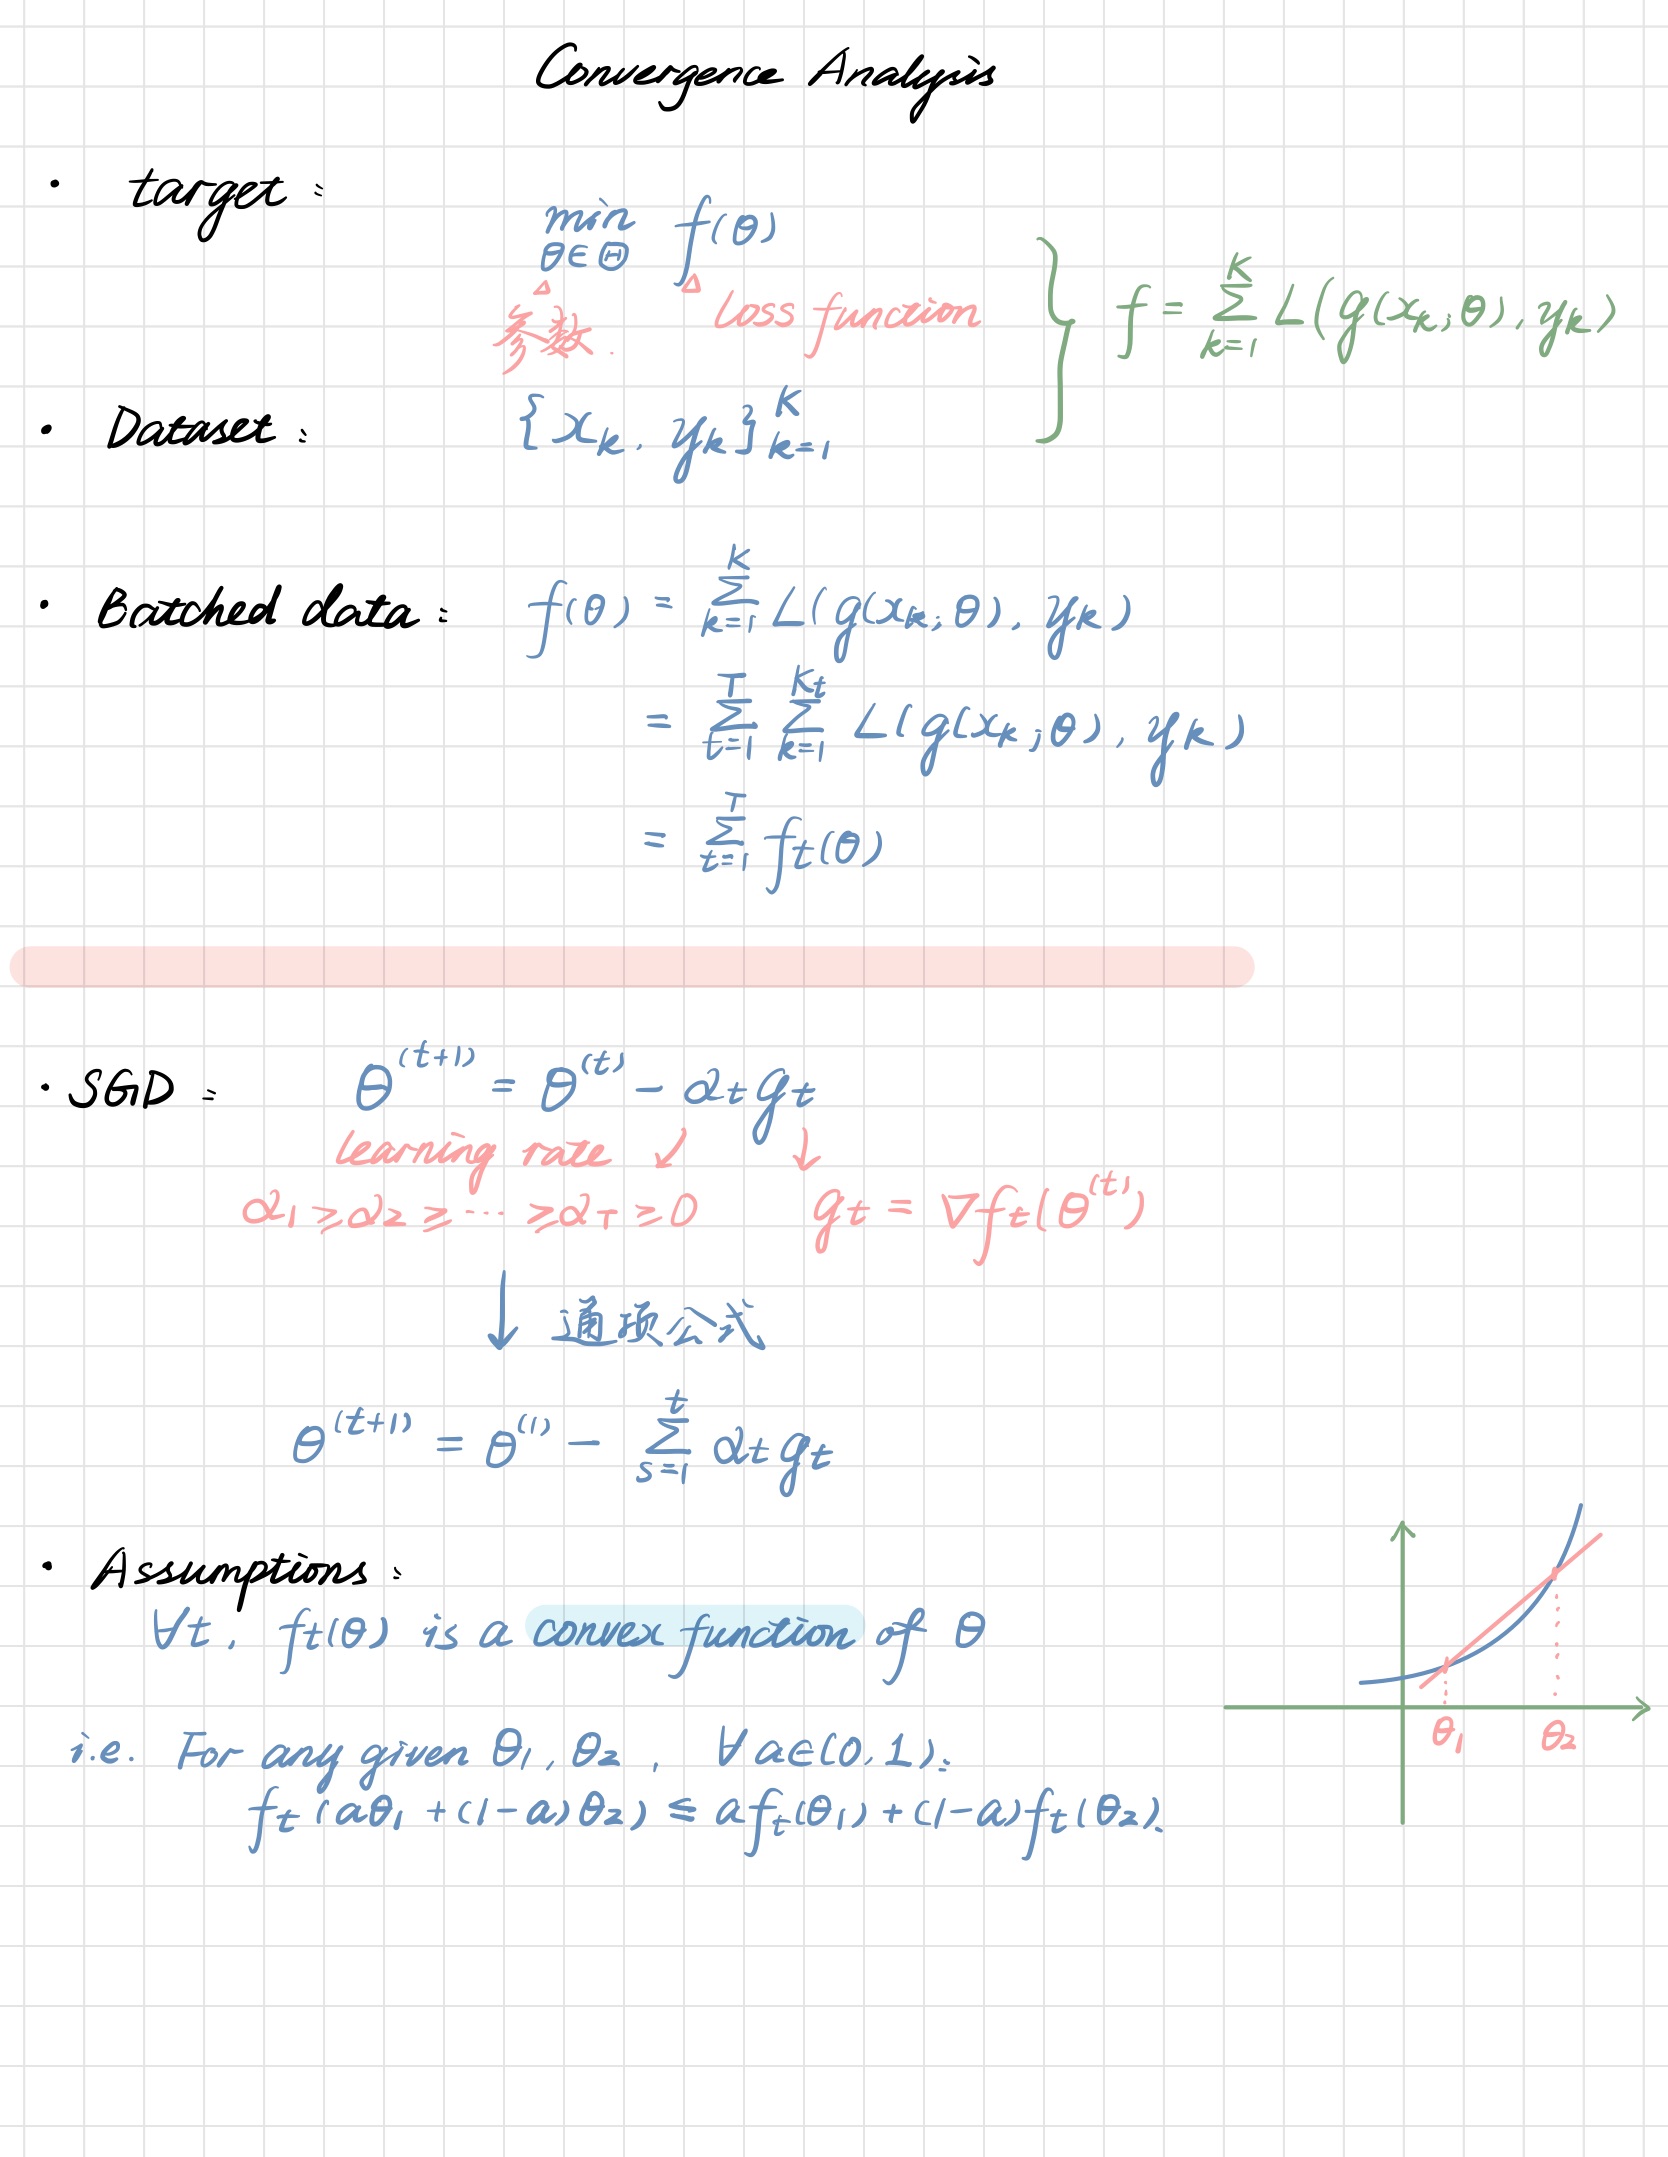 Convergence Analysis
· target:
min f(θ)
θ∈Θ
参数. Loss function
f = Σ_{k=1}^{K} L(g(x_k;θ), y_k)
· Dataset: {x_k, y_k}_{k=1}^{K}
· Batched data: f(θ) = Σ_{k=1}^{K} L(g(x_k;θ), y_k)
= Σ_{t=1}^{T} Σ_{k=1}^{K_t} L(g(x_k;θ), y_k)
= Σ_{t=1}^{T} f_t(θ)
· SGD: θ^{(t+1)} = θ^{(t)} - α_t g_t
learning rate ↙ ↓
α_1 ≥ α_2 ≥ ··· ≥ α_T ≥ 0 g_t = ∇f_t(θ^{(t)})
↓ 通项公式
θ^{(t+1)} = θ^{(1)} - Σ_{s=1}^{t} α_t g_t
· Assumptions:
∀t, f_t(θ) is a convex function of θ
i.e. For any given θ_1, θ_2, ∀a∈(0,1):
f_t(aθ_1 + (1-a)θ_2) ≤ a f_t(θ_1) + (1-a) f_t(θ_2).
θ_1 θ_2